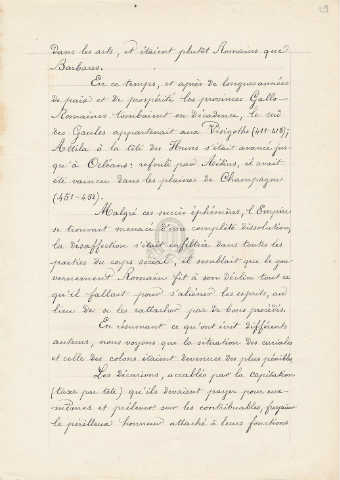 29
dans les arts, et étaient plutôt Romains que
Barbares.
En ce temps, et après de longues années
de paix et de prospérité les provinces Gallo-
Romaines tombaient en décadence, le sud
des Gaules appartenait aux Visigoths (411-418);
Attila à la tête des Huns s'était avancé jus
qu'à Orléans; refoulé par Aétius, il avait
été vaincu dans les plaines de Champagne
(451-452).
Malgré ces succès éphémères, l'Empire
se trouvait menacé d'une complète dissolution,
la désaffection s'était infiltrée dans toutes les
parties du corps social, il semblait que le gou
vernement Romain fit à son déclin tout ce
qu'il fallait pour s'aliéner les esprits, au
lieu de se les rattacher par de bons procédés.
En résumant ce qu'ont écrit différents
auteurs, nous voyons que la situation des curiales
et celle des colons étaient devenues des plus pénibles
Les décurions, accablés par la capitation
(taxe par tête) qu'ils devaient payer pour eux-
mêmes et prélever sur les contribuables, fuyaient
le périlleux honneur attaché à leurs fonctions